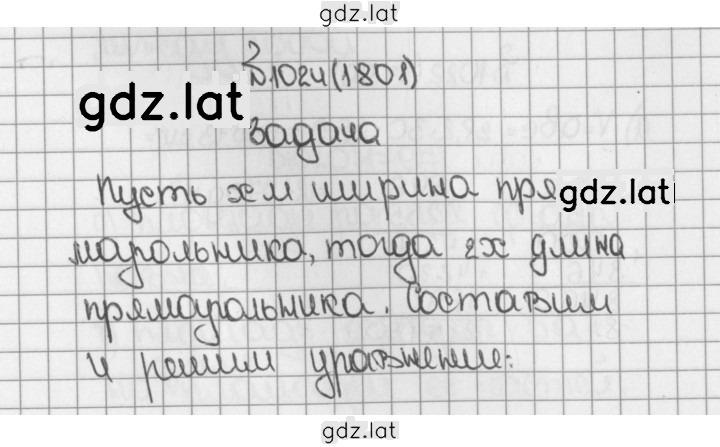 gdz.lat
№1024(1801)
gdz.lat
Задача
Пусть x м ширина пря
gdz.lat
моугольника, тогда 2x длина
прямоугольника. Составим
и решим уравнение:
gdz.lat